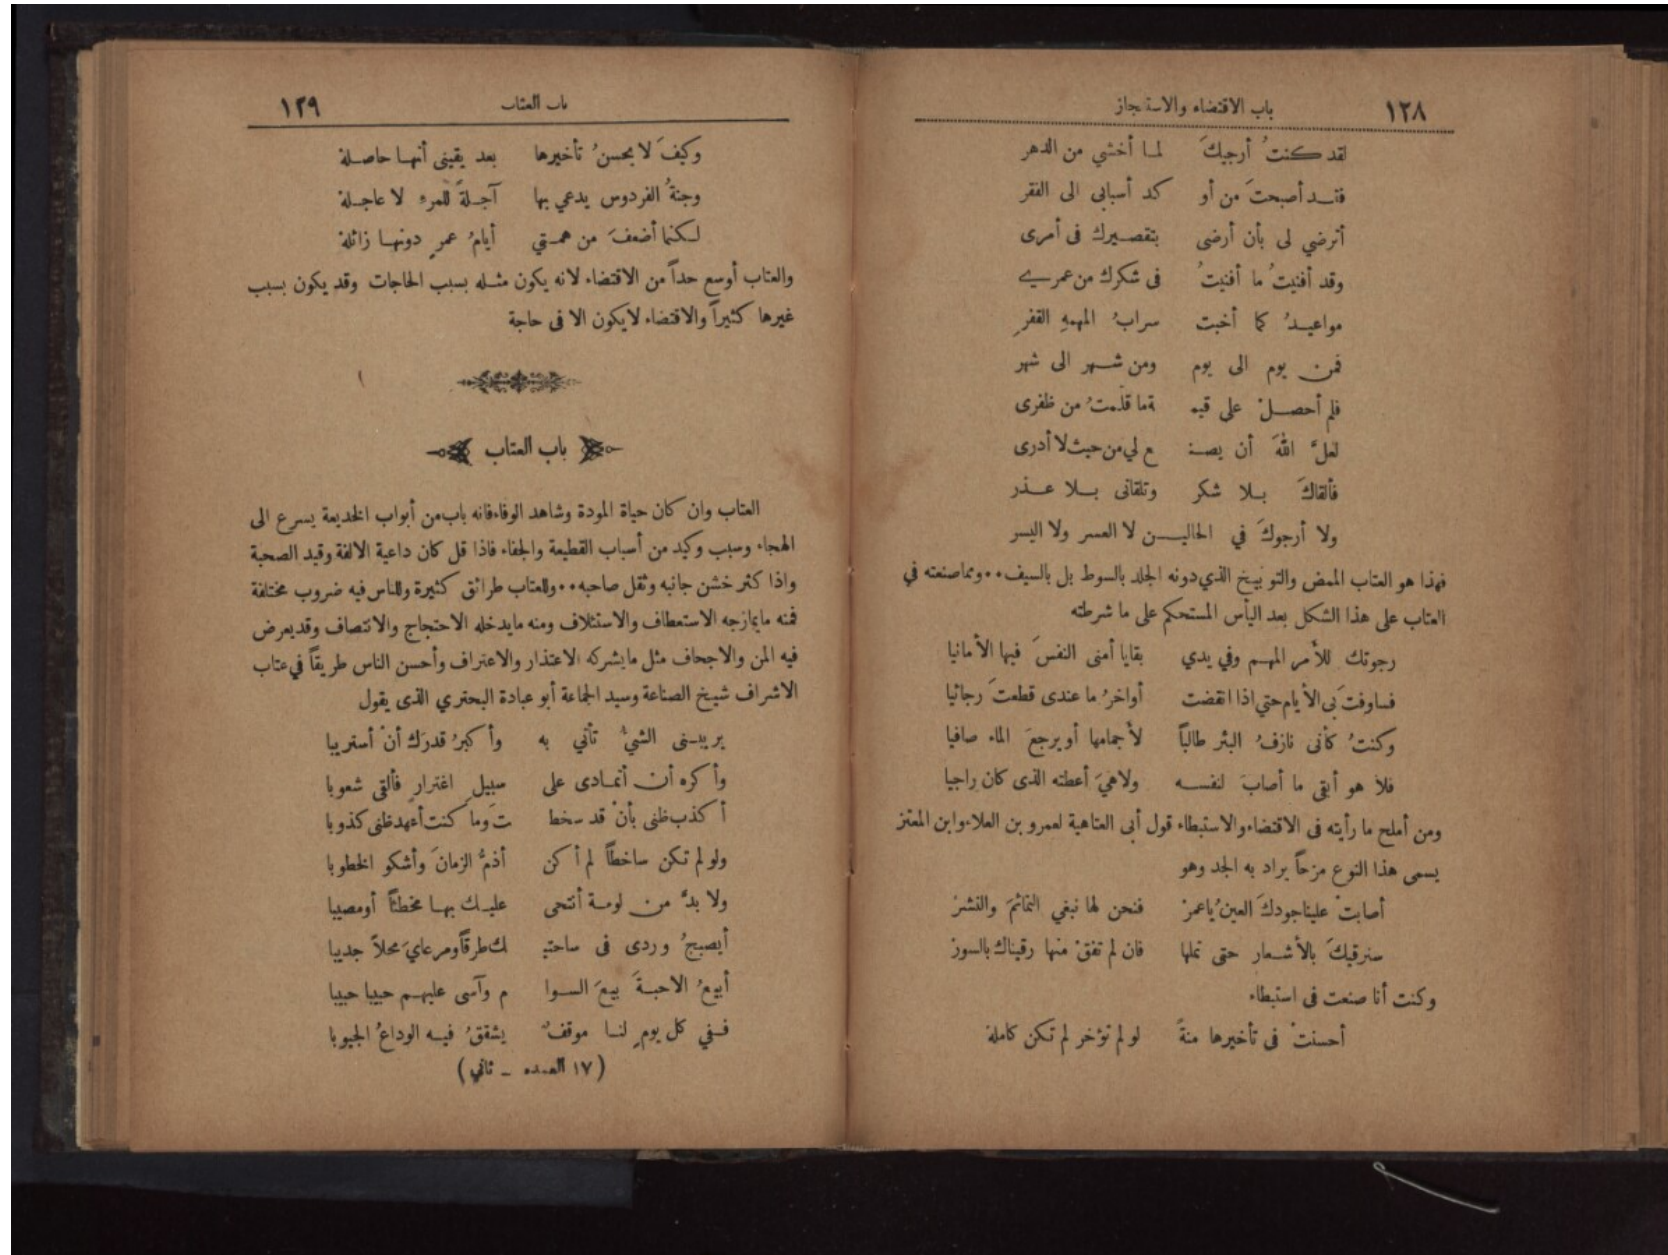 ١٢٨ باب الاقتضاء والاستنجاز
لقد كنتُ أرجيكَ لما أخشي من الدهر
فقد أصبحتَ من أو كد أسبابى الى الفقر
أترضي لى بأن أرضى بتقصيرك فى أمرى
وقد أفنيتُ ما أفنيتُ فى شكرك من عمرى
مواعيدُ كما أخبت سرابُ المهمهِ القفرِ
فمن يوم الى يوم ومن شهر الى شهر
فلم أحصلْ على قيمـ ـة ما قلمتُ من ظفرى
لعلَّ اللهَ أن يصنـ ـع لي من حيث لا أدرى
فألقاكَ بلا شكر وتلقانى بلا عذر
ولا أرجوكَ في الحاليـن لا العسر ولا اليسر
فهذا هو العتاب الممض والتوبيخ الذي دونه الجلد بالسوط بل بالسيف٠٠ومما صنعته في
العتاب على هذا الشكل بعد اليأس المستحكم على ما شرطته
رجوتك للأمر المهم وفي يدي بقايا أمنى النفسَ فيها الأمانيا
فساوفتَ بى الأيام حتي اذا انقضت أواخرُ ما عندى قطعتَ رجائيا
وكنتُ كأنى نازفُ البئر طالباً لأجمامها أو يرجعَ الماء صافيا
فلا هو أبقى ما أصابَ لنفسه ولا هيَ أعطته الذى كان راجيا
ومن أملح ما رأيته فى الاقتضاء والاستبطاء قول أبى العتاهية لعمرو بن العلاء وابن المعتز
يسمى هذا النوع مزحاً يراد به الجد وهو
أصابتْ علينا جودكَ العينُ يا عمرْ فنحن لها نبغي التمائمَ والنشرْ
سنرقيكَ بالأشعارِ حتى تملها فان لم تفقْ منها رقيناك بالسورْ
وكنت أنا صنعت فى استبطاء
أحسنتْ فى تأخيرها منةً لو لم تؤخر لم تكن كاملة
باب العتاب ١٢٩
وكيفَ لا يحسنُ تأخيرها بعد يقينى أنها حاصلة
وجنةُ الفردوس يدعي بها آجلةً للمرء لا عاجلة
لكنما أضعفَ من همتي أيامُ عمرٍ دونها زائلة
والعتاب أوسع حداً من الاقتضاء لانه يكون مثله بسبب الحاجات وقد يكون بسبب
غيرها كثيراً والاقتضاء لا يكون الا فى حاجة
باب العتاب
العتاب وان كان حياة المودة وشاهد الوفاء فانه باب من أبواب الخديعة يسرع الى
الهجاء وسبب وكيد من أسباب القطيعة والجفاء فاذا قل كان داعية الالفة وقيد الصحبة
واذا كثر خشن جانبه وثقل صاحبه٠٠وللعتاب طرائق كثيرة وللناس فيه ضروب مختلفة
فمنه ما يمازجه الاستعطاف والاستئلاف ومنه ما يدخله الاحتجاج والانتصاف وقد يعرض
فيه المن والاجحاف مثل ما يشركه الاعتذار والاعتراف وأحسن الناس طريقاً في عتاب
الاشراف شيخ الصناعة وسيد الجماعة أبو عبادة البحتري الذى يقول
يريبنى الشيُّ تأتي به وأكبرُ قدرَك أنْ أستريبا
وأكره أن أتمادى على سبيلِ اغترارٍ فألقى شعوبا
أكذب ظنى بأنْ قد سخط تَ وما كنت أعهد ظنى كذوبا
ولو لم تكن ساخطاً لم أكن أذمُّ الزمانَ وأشكو الخطوبا
ولا بدَّ من لومة أنتحى عليك بها مخطئاً أو مصيبا
أيصبحُ وردى فى ساحتيـ ـك طرقاً ومرعايَ محلاً جديبا
أبيعُ الاحبةَ بيعَ السوا م وآسى عليهم حبيبا حبيبا
ففي كل يومٍ لنا موقفٌ يشققُ فيه الوداعُ الجيوبا
(١٧ العمده _ ثاني)